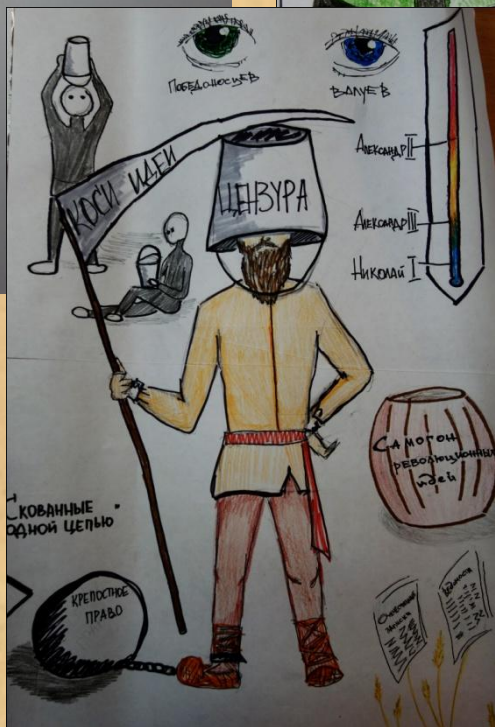 ПОБЕДОНОСЦЕВ
ВАЛУЕВ
АЛЕКСАНДР II
АЛЕКСАНДР III
НИКОЛАЙ I
КОСИ ИДЕИ
ЦЕНЗУРА
САМОГОН
РЕВОЛЮЦИОННЫХ
ИДЕЙ
СКОВАННЫЕ
ОДНОЙ ЦЕПЬЮ"
КРЕПОСТНОЕ
ПРАВО
Отечественные
записки